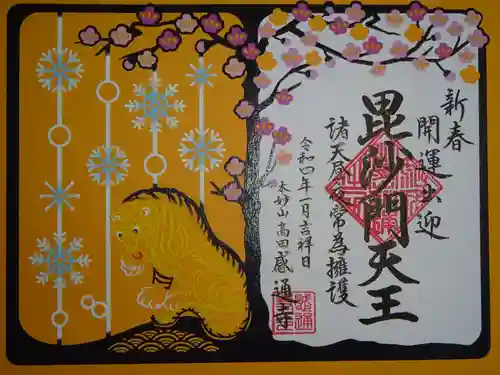 新春
開運出迎
毘沙門天王
諸天昼夜常為擁護
令和四年一月吉祥日
本妙山高田感通寺